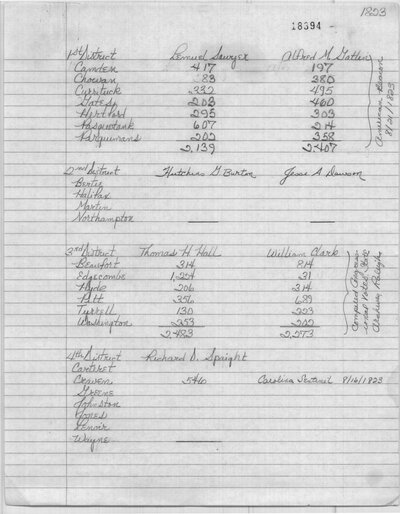 1823
18394
1st District Lemuel Sawyer Alfred M. Gatlin
Camden 417 197
Chowan 83 380
Currituck 332 495
Gates 203 460
Hertford 295 303
Pasquotank 607 214
Perquimans 202 358
2,139 2,407
American Beacon
8/21/1823
2nd District Hutchins G. Burton Jesse A. Dawson
Bertie
Halifax
Martin
Northampton
3rd District Thomas H. Hall William Clark
Beaufort 314 814
Edgecombe 1,224 31
Hyde 206 314
Pitt 356 689
Tyrrell 130 223
Washington 253 202
2,483 2,273
Compiled Congres-
sional Voting State
Raleigh
4th District Richard D. Spaight
Carteret
Craven 546 Carolina Sentinel 8/16/1823
Greene
Johnston
Jones
Lenoir
Wayne